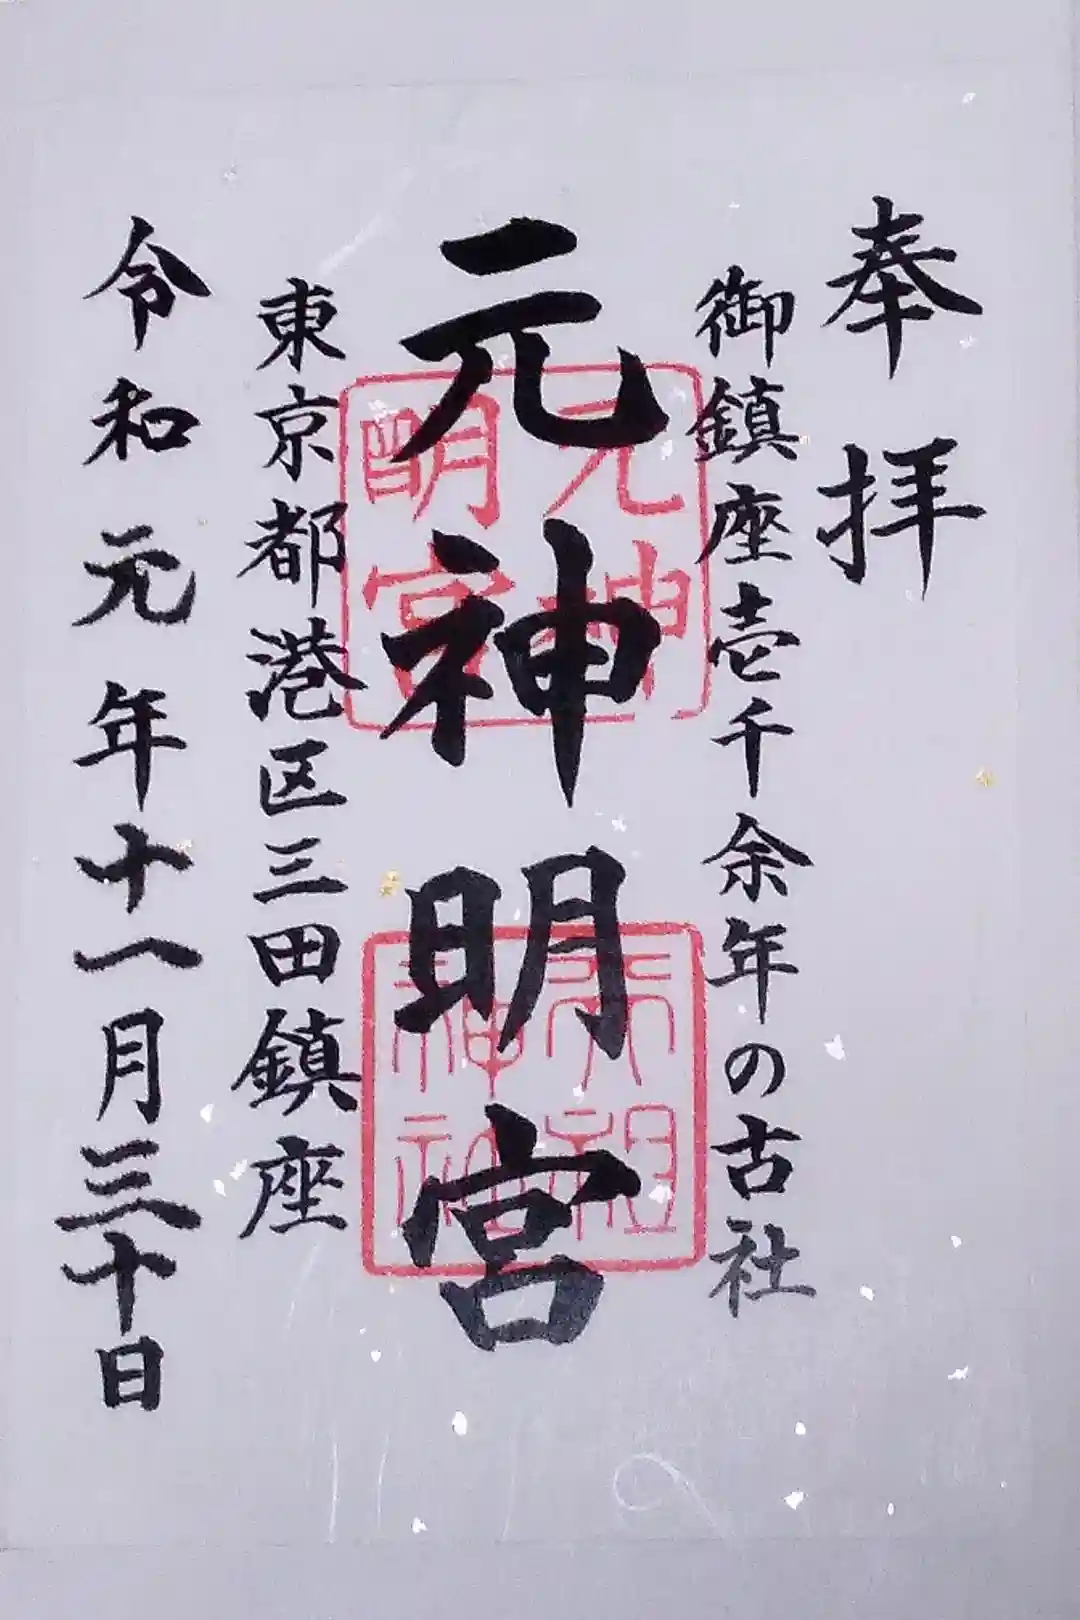 奉拝
御鎮座壱千余年の古社
元神明宮
東京都港区三田鎮座
令和元年十一月三十日
元神
明宮
天祖
神社